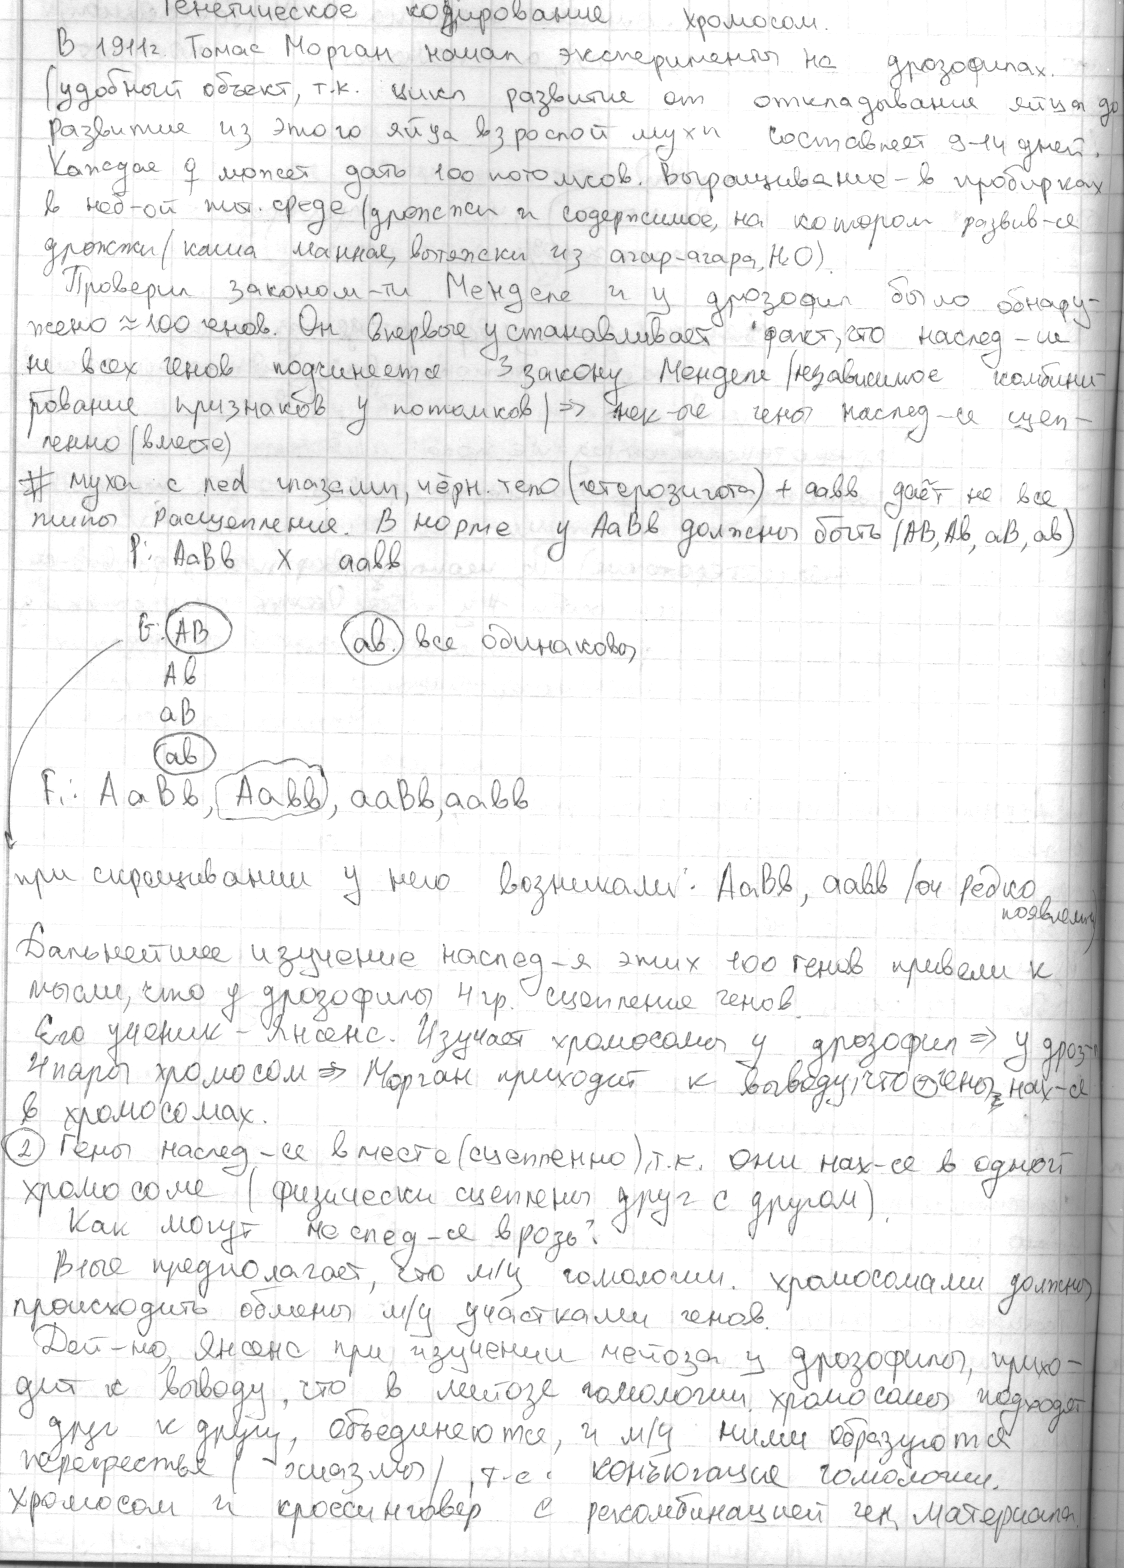 Генетическое кодирование хромосом.
В 1911г. Томас Морган начал эксперименты на дрозофилах.
(удобный объект, т.к. цикл развитие от откладывание яйца до
развитие из этого яйца взрослой мухи составляет 9-14 дней.
Каждая ♀ может дать 100 потомков. Выращивание - в пробирках
в неб-ой пит. среде (дрожжи и содержимое, на котором развив-ся
дрожжи/ каша манная, вытяжки из агар-агара, H2O).
Проверил законом-ти Менделя и у дрозофил было обнару-
жено ≈ 100 генов. Он впервые устанавливает факт, что наслед-ие
не всех генов подчиняется 3 закону Менделя (независимое комбини
рование признаков у потомков) ⇒ нек-ые гены наслед-ся сцеп-
ленно (вместе)
# муха с red глазами, чёрн. тело (гетерозигота) + аавв даёт не все
типы расщепления. В норме у АаВв должны быть (АВ, Ав, аВ, ав)
P: АаВв X аавв
G: АВ ав все одинаковы
Ав
аВ
ав
F1: АаВв, Аавв, ааВв, аавв
при скрещивании у него возникали: АаВв, аавв (оч редко
появлялись)
Дальнейшее изучение наслед-я этих 100 генов привели к
мысли, что у дрозофилы 4 гр. сцепление генов.
Его ученик - Янсенс. Изучает хромосомы у дрозофил ⇒ у дроз-
4 пары хромосом ⇒ Морган приходит к выводу, что гены нах-ся
в хромосомах.
② Гены наслед-ся вместе (сцепленно), т.к. они нах-ся в одной
хромосоме (физически сцеплены друг с другом).
Как могут наслед-ся врозь?
предполагает, что м/у гомологич. хромосомами должны
происходить обмены м/у участками генов.
Дей-но, Янсенс при изучении мейоза у дрозофилы, прихо-
дит к выводу, что в мейозе гомологич. хромосомы подходят
друг к другу, объединяются, и м/у ними образуются
перекрестья (хиазмы), т.е. конъюгация гомологич.
хромосом и кроссинговер с рекомбинацией ген. материала